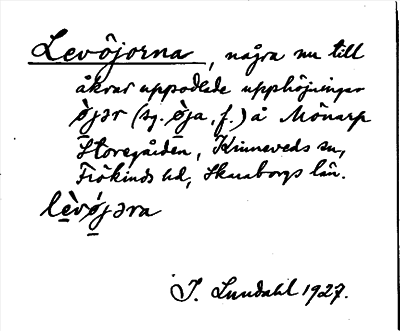 Levöjorna, några nu till
åkrar uppodlade upphöjningar
ø̀jər (sg. ø̀ja, f.) å Mönarp
Storegården, Kinneveds sn,
Frökinds hd, Skaraborgs län.
lèvǿjəra
J. Lundahl 1927.